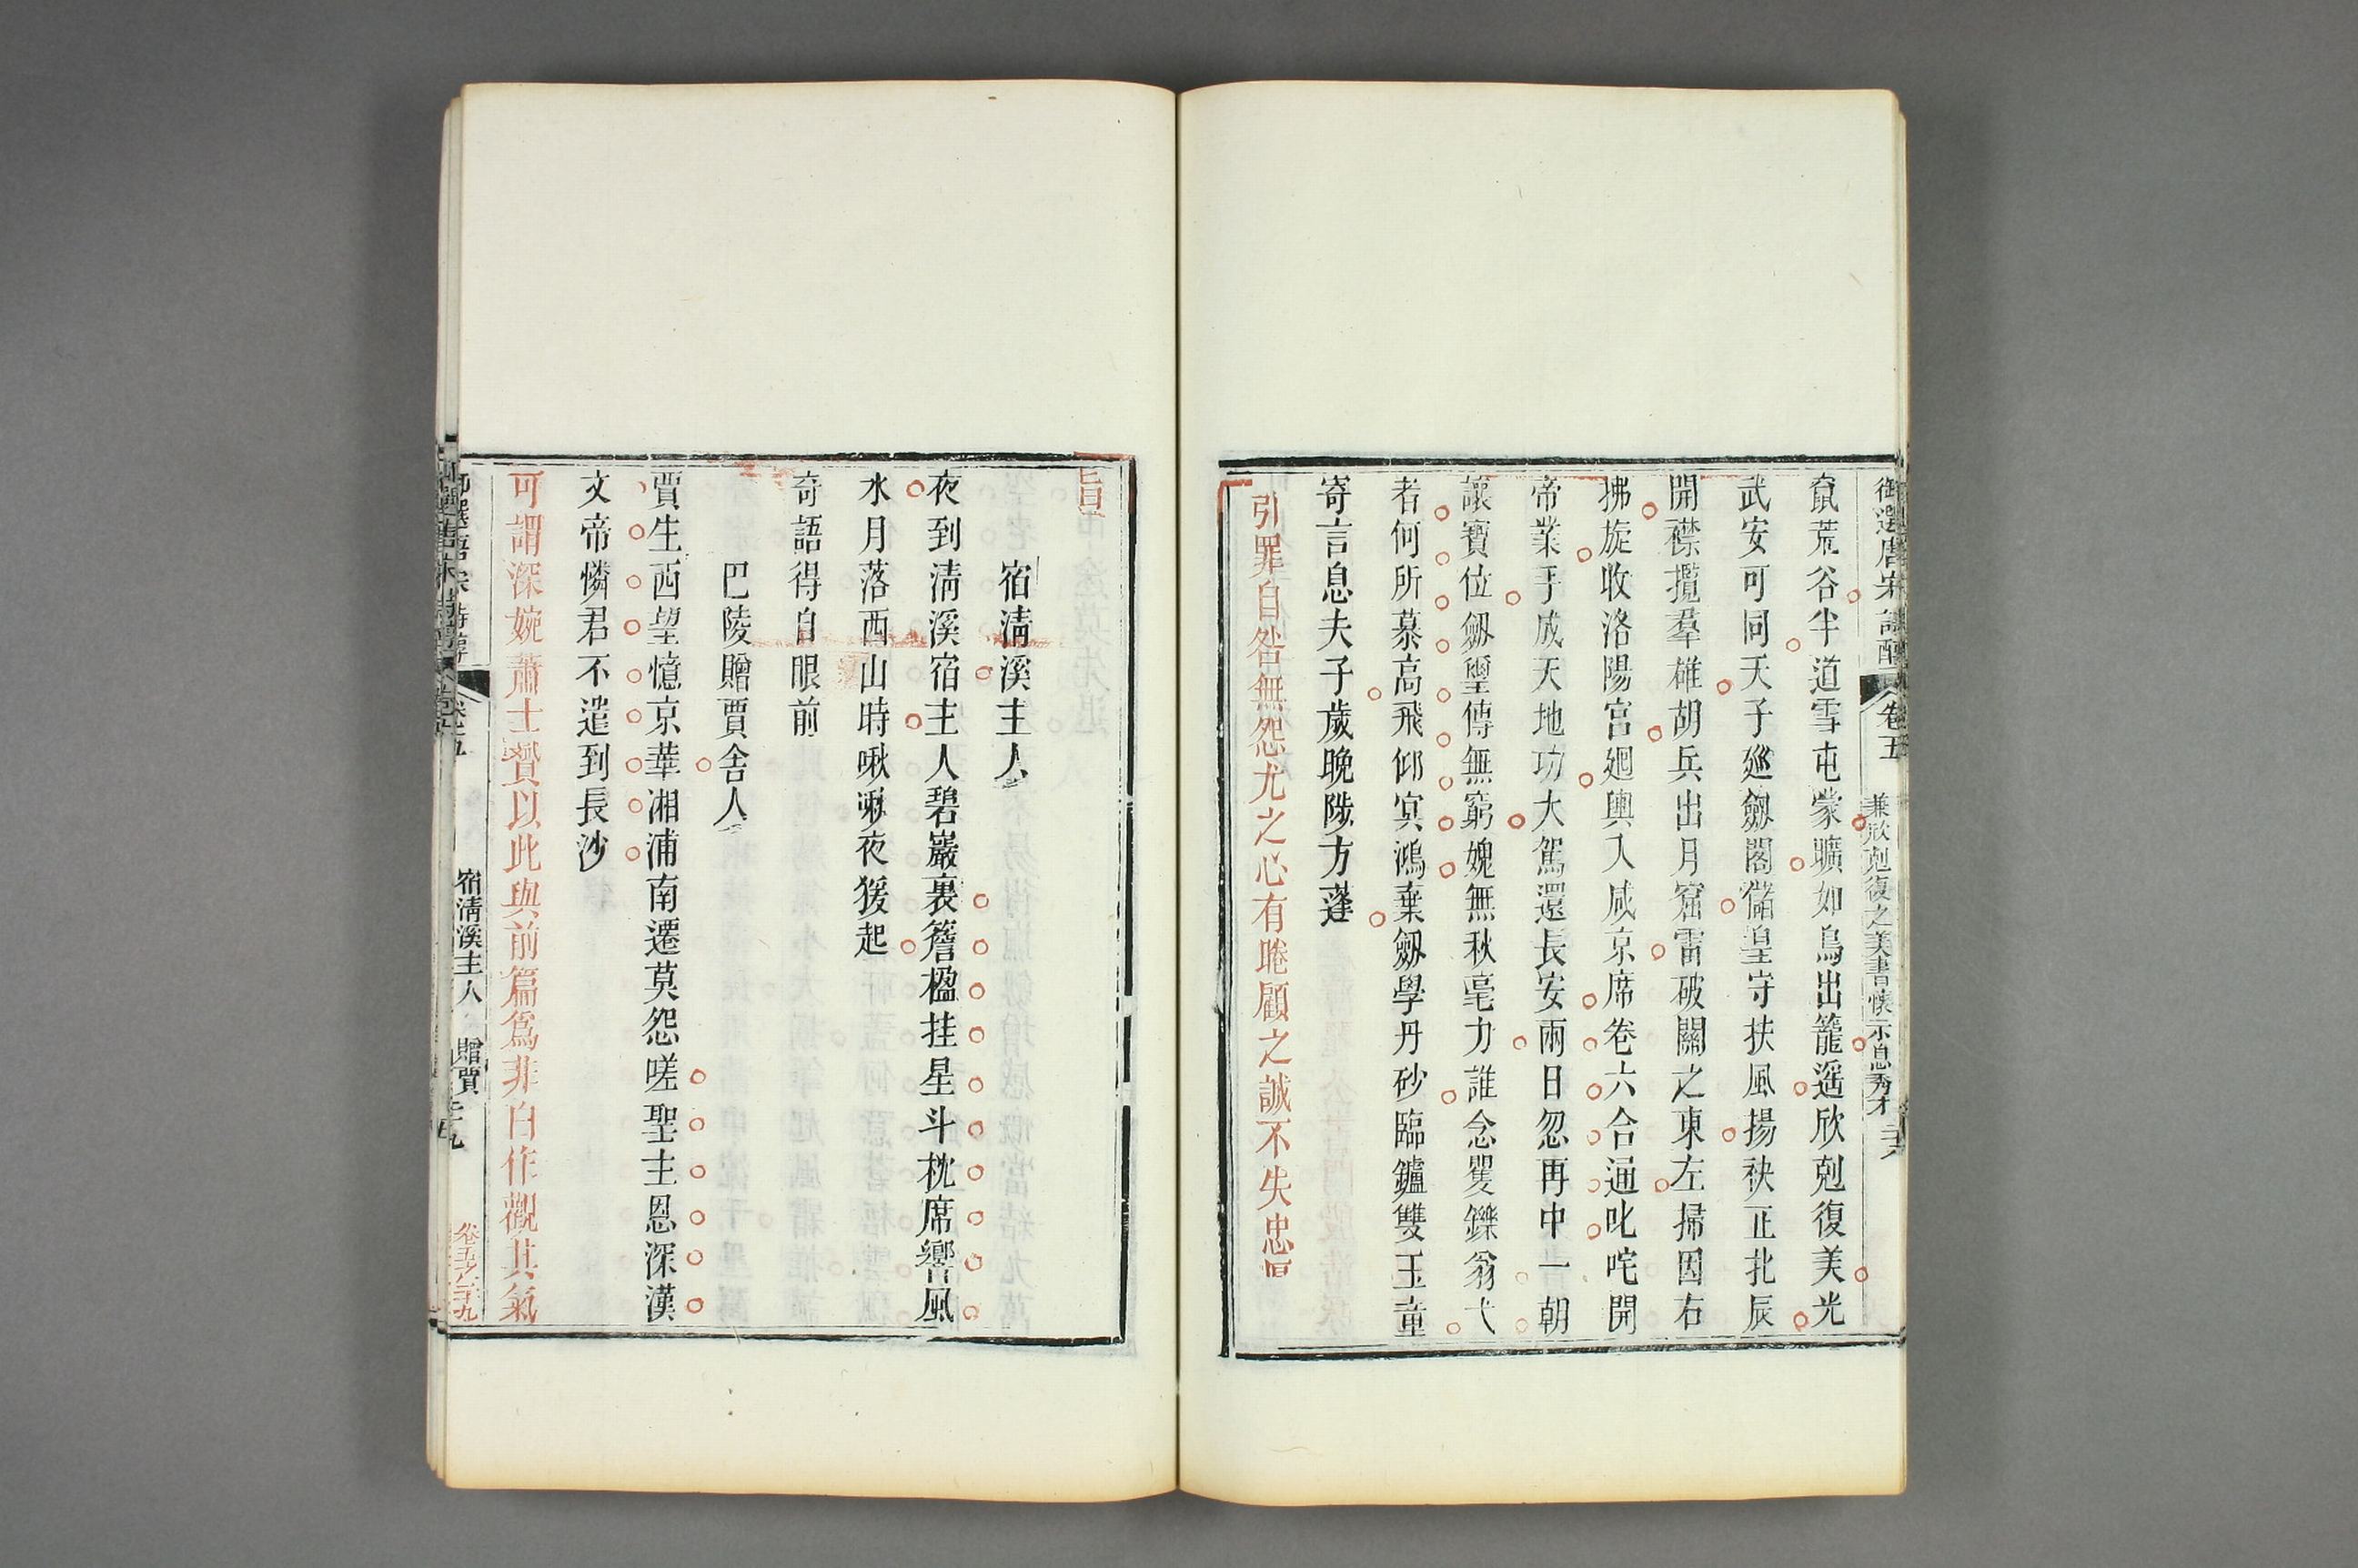 御選唐宋詩醇 卷五 兼欣剋復之美書懷示息秀才
竄荒谷半道雪屯蒙曠如鳥出籠遥欣剋復美光
武安可同天子廵劔閣儲皇守扶風揚袂正北辰
開襟攬羣雄胡兵出月窟雷破關之東左掃因右
拂旋收洛陽宮廻輿入咸京席卷六合通叱咤開
帝業手成天地功大駕還長安兩日忽再中一朝
讓寶位劔璽傳無窮媿無秋毫力誰念矍鑠翁弋
者何所慕高飛仰冥鴻棄劔學丹砂臨鑪雙玉童
寄言息夫子歲晚陟方蓬
引罪自咎無怨尤之心有睠顧之誠不失忠旨
旨
宿清溪主人
夜到清溪宿主人碧巖裏簷楹挂星斗枕席響風
水月落西山時啾啾夜猨起
奇語得自眼前
巴陵贈賈舍人
賈生西望憶京華湘浦南遷莫怨嗟聖主恩深漢
文帝憐君不遣到長沙
可謂深婉蕭士贇以此與前篇爲非白作觀其氣
宿清溪主人 贈賈
卷五之二十九